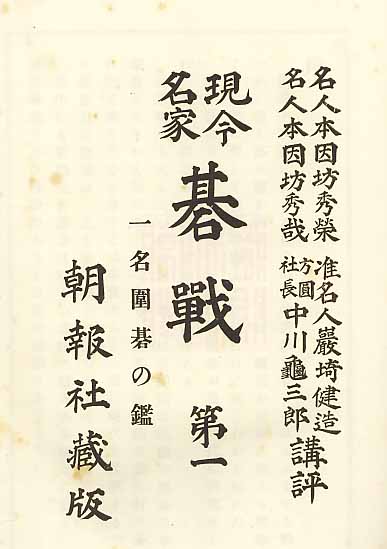 名人本因坊秀榮 准名人巖埼健造
名人本因坊秀哉 方圓社長中川龜三郎 講評
現今名家
碁戰 第一
一名圍碁の鑑
朝報社藏版